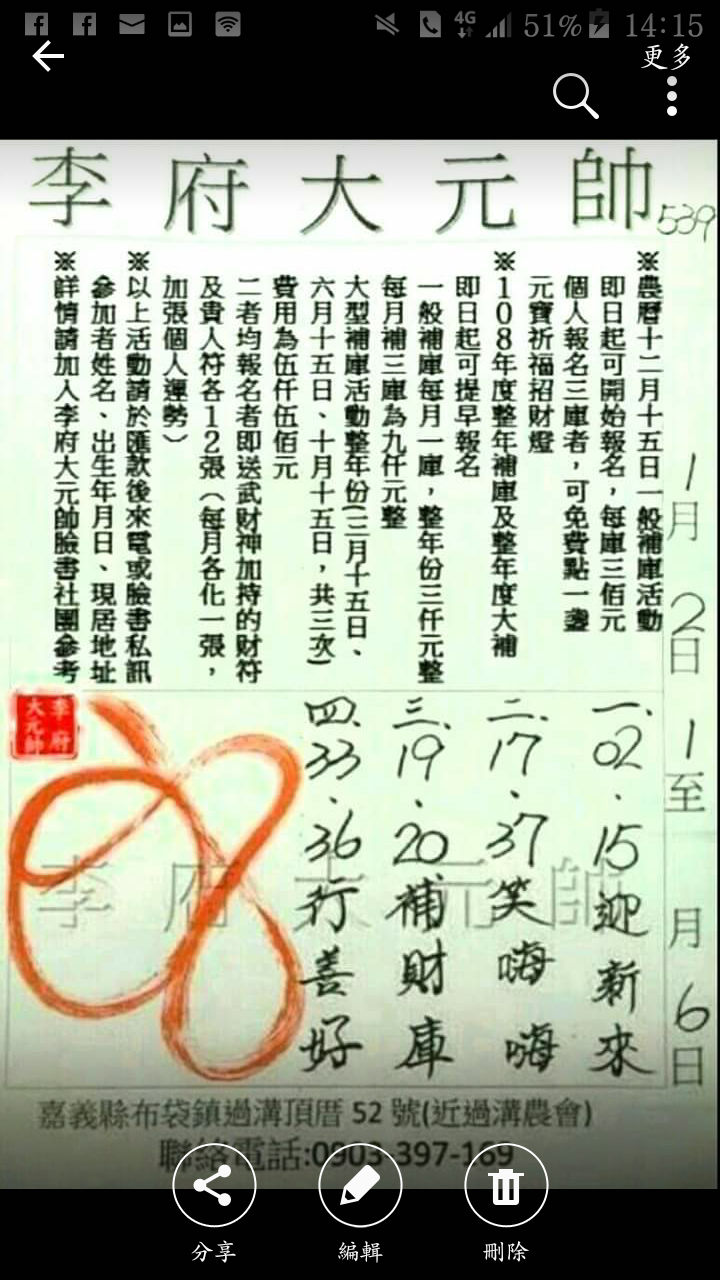 4G 51% 14:15
更多
李府大元帥
539
※農曆十二月十五日一般補庫活動
即日起可開始報名，每庫三佰元
個人報名三庫者，可免費點一盞
元寶祈福招財燈
※108年度整年補庫及整年度大補
即日起可提早報名
一般補庫每月一庫，整年份三仟元整
每月補三庫為九仟元整
大型補庫活動整年份(三月十五日、
六月十五日、十月十五日，共三次)
費用為伍仟伍佰元
二者均報名者即送武財神加持的財符
及貴人符各12張(每月各化一張，
加張個人運勢)
※以上活動請於匯款後來電或臉書私訊
參加者姓名、出生年月日、現居地址
※詳情請加入李府大元帥臉書社團參考
1月2日1至 月6日
一.02.15迎新來
二.17.37笑嗨嗨
三.19.20補財庫
四.33.36行善好
李府大元帥
李府大元帥
嘉義縣布袋鎮過溝頂厝 52 號(近過溝農會)
聯絡電話:0903-397-169
分享 編輯 刪除